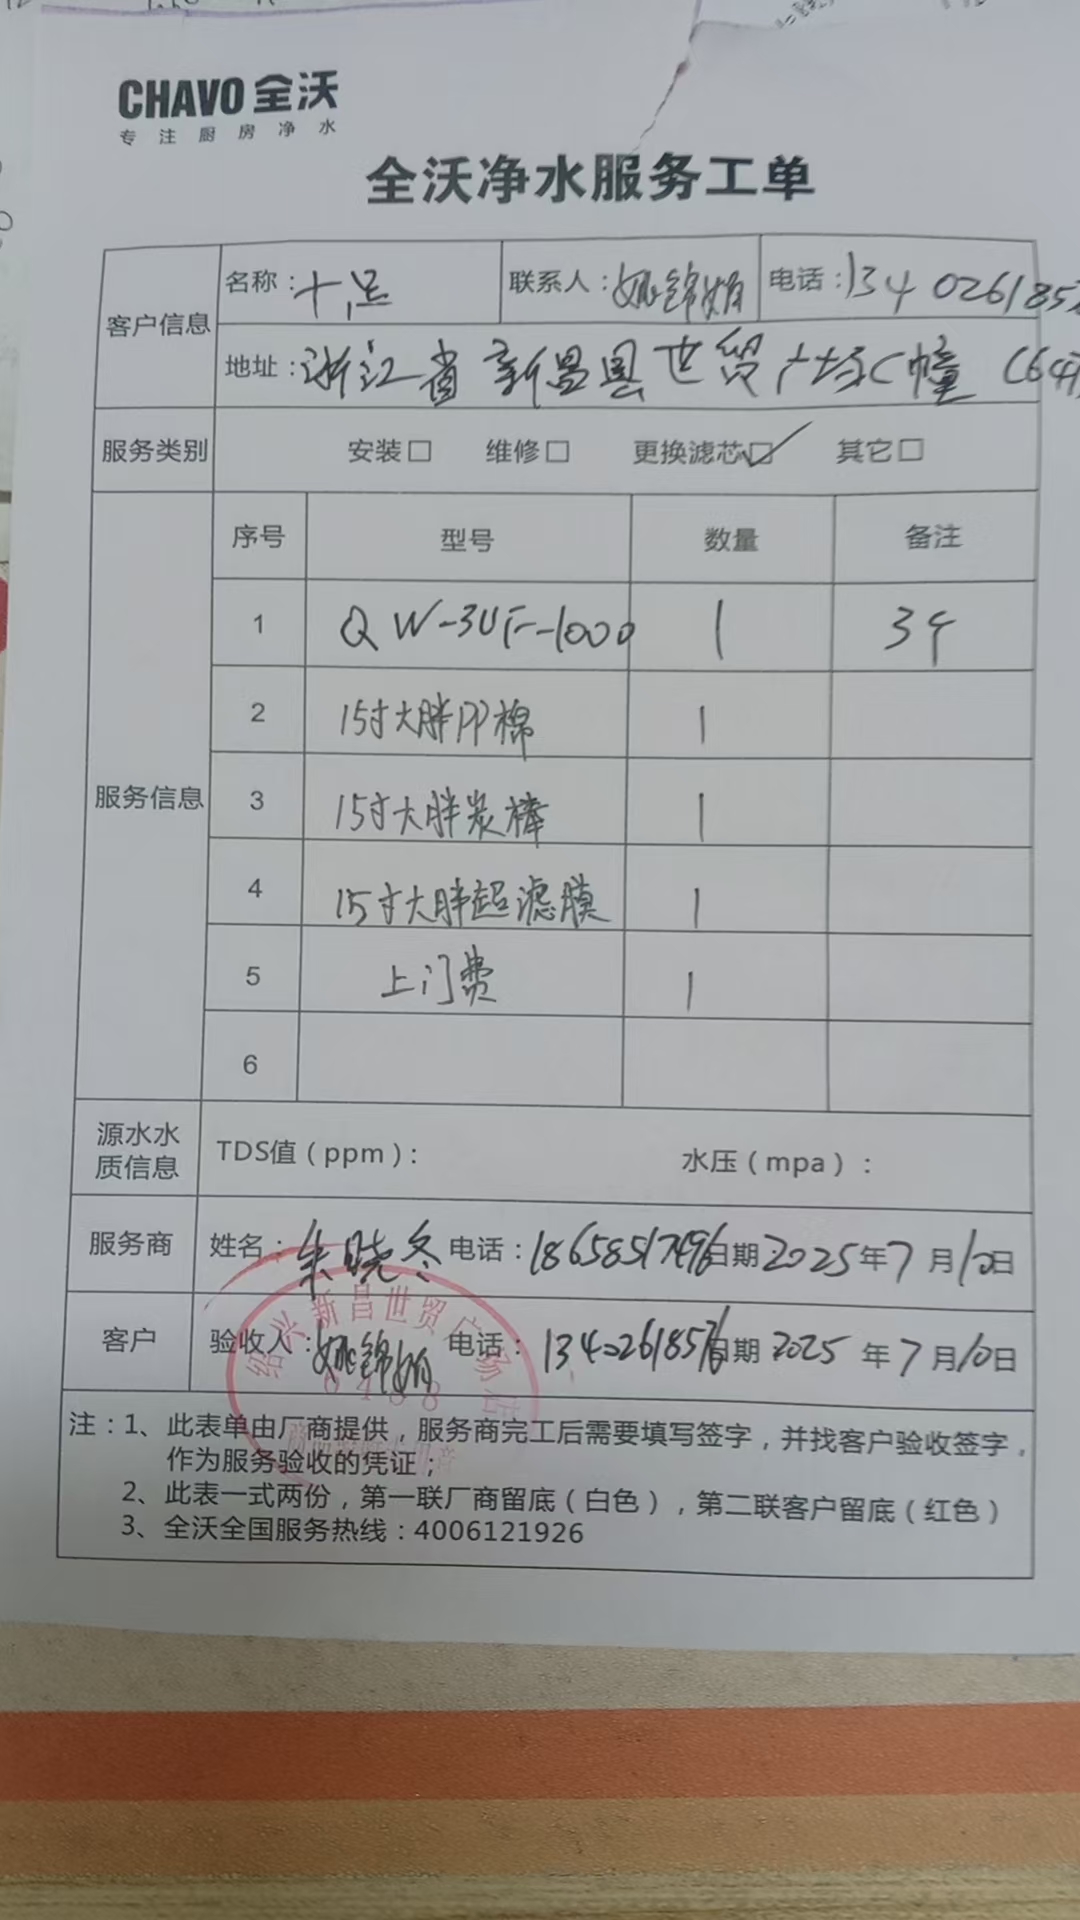 CHAVO 全沃
专注厨房净水
全沃净水服务工单
客户信息
名称：十足 联系人：姚锦娟 电话：1340261857
地址：浙江省新昌县世贸广场C幢
服务类别 安装□ 维修□ 更换滤芯☑ 其它□
服务信息
序号 型号 数量 备注
1 QW-3UF-1000 1 3年
2 15寸大胖PP棉 1
3 15寸大胖炭棒 1
4 15寸大胖超滤膜 1
5 上门费 1
6
源水水质信息 TDS值（ppm）： 水压（mpa）：
服务商 姓名：朱晓冬 电话：18658517496 日期 2025年7月10日
客户 验收人：姚锦娟 电话：13402618576 日期 2025年7月10日
绍兴新昌世贸广场店
0488
注：1、此表单由厂商提供，服务商完工后需要填写签字，并找客户验收签字，
作为服务验收的凭证；
2、此表一式两份，第一联厂商留底（白色），第二联客户留底（红色）
3、全沃全国服务热线：4006121926